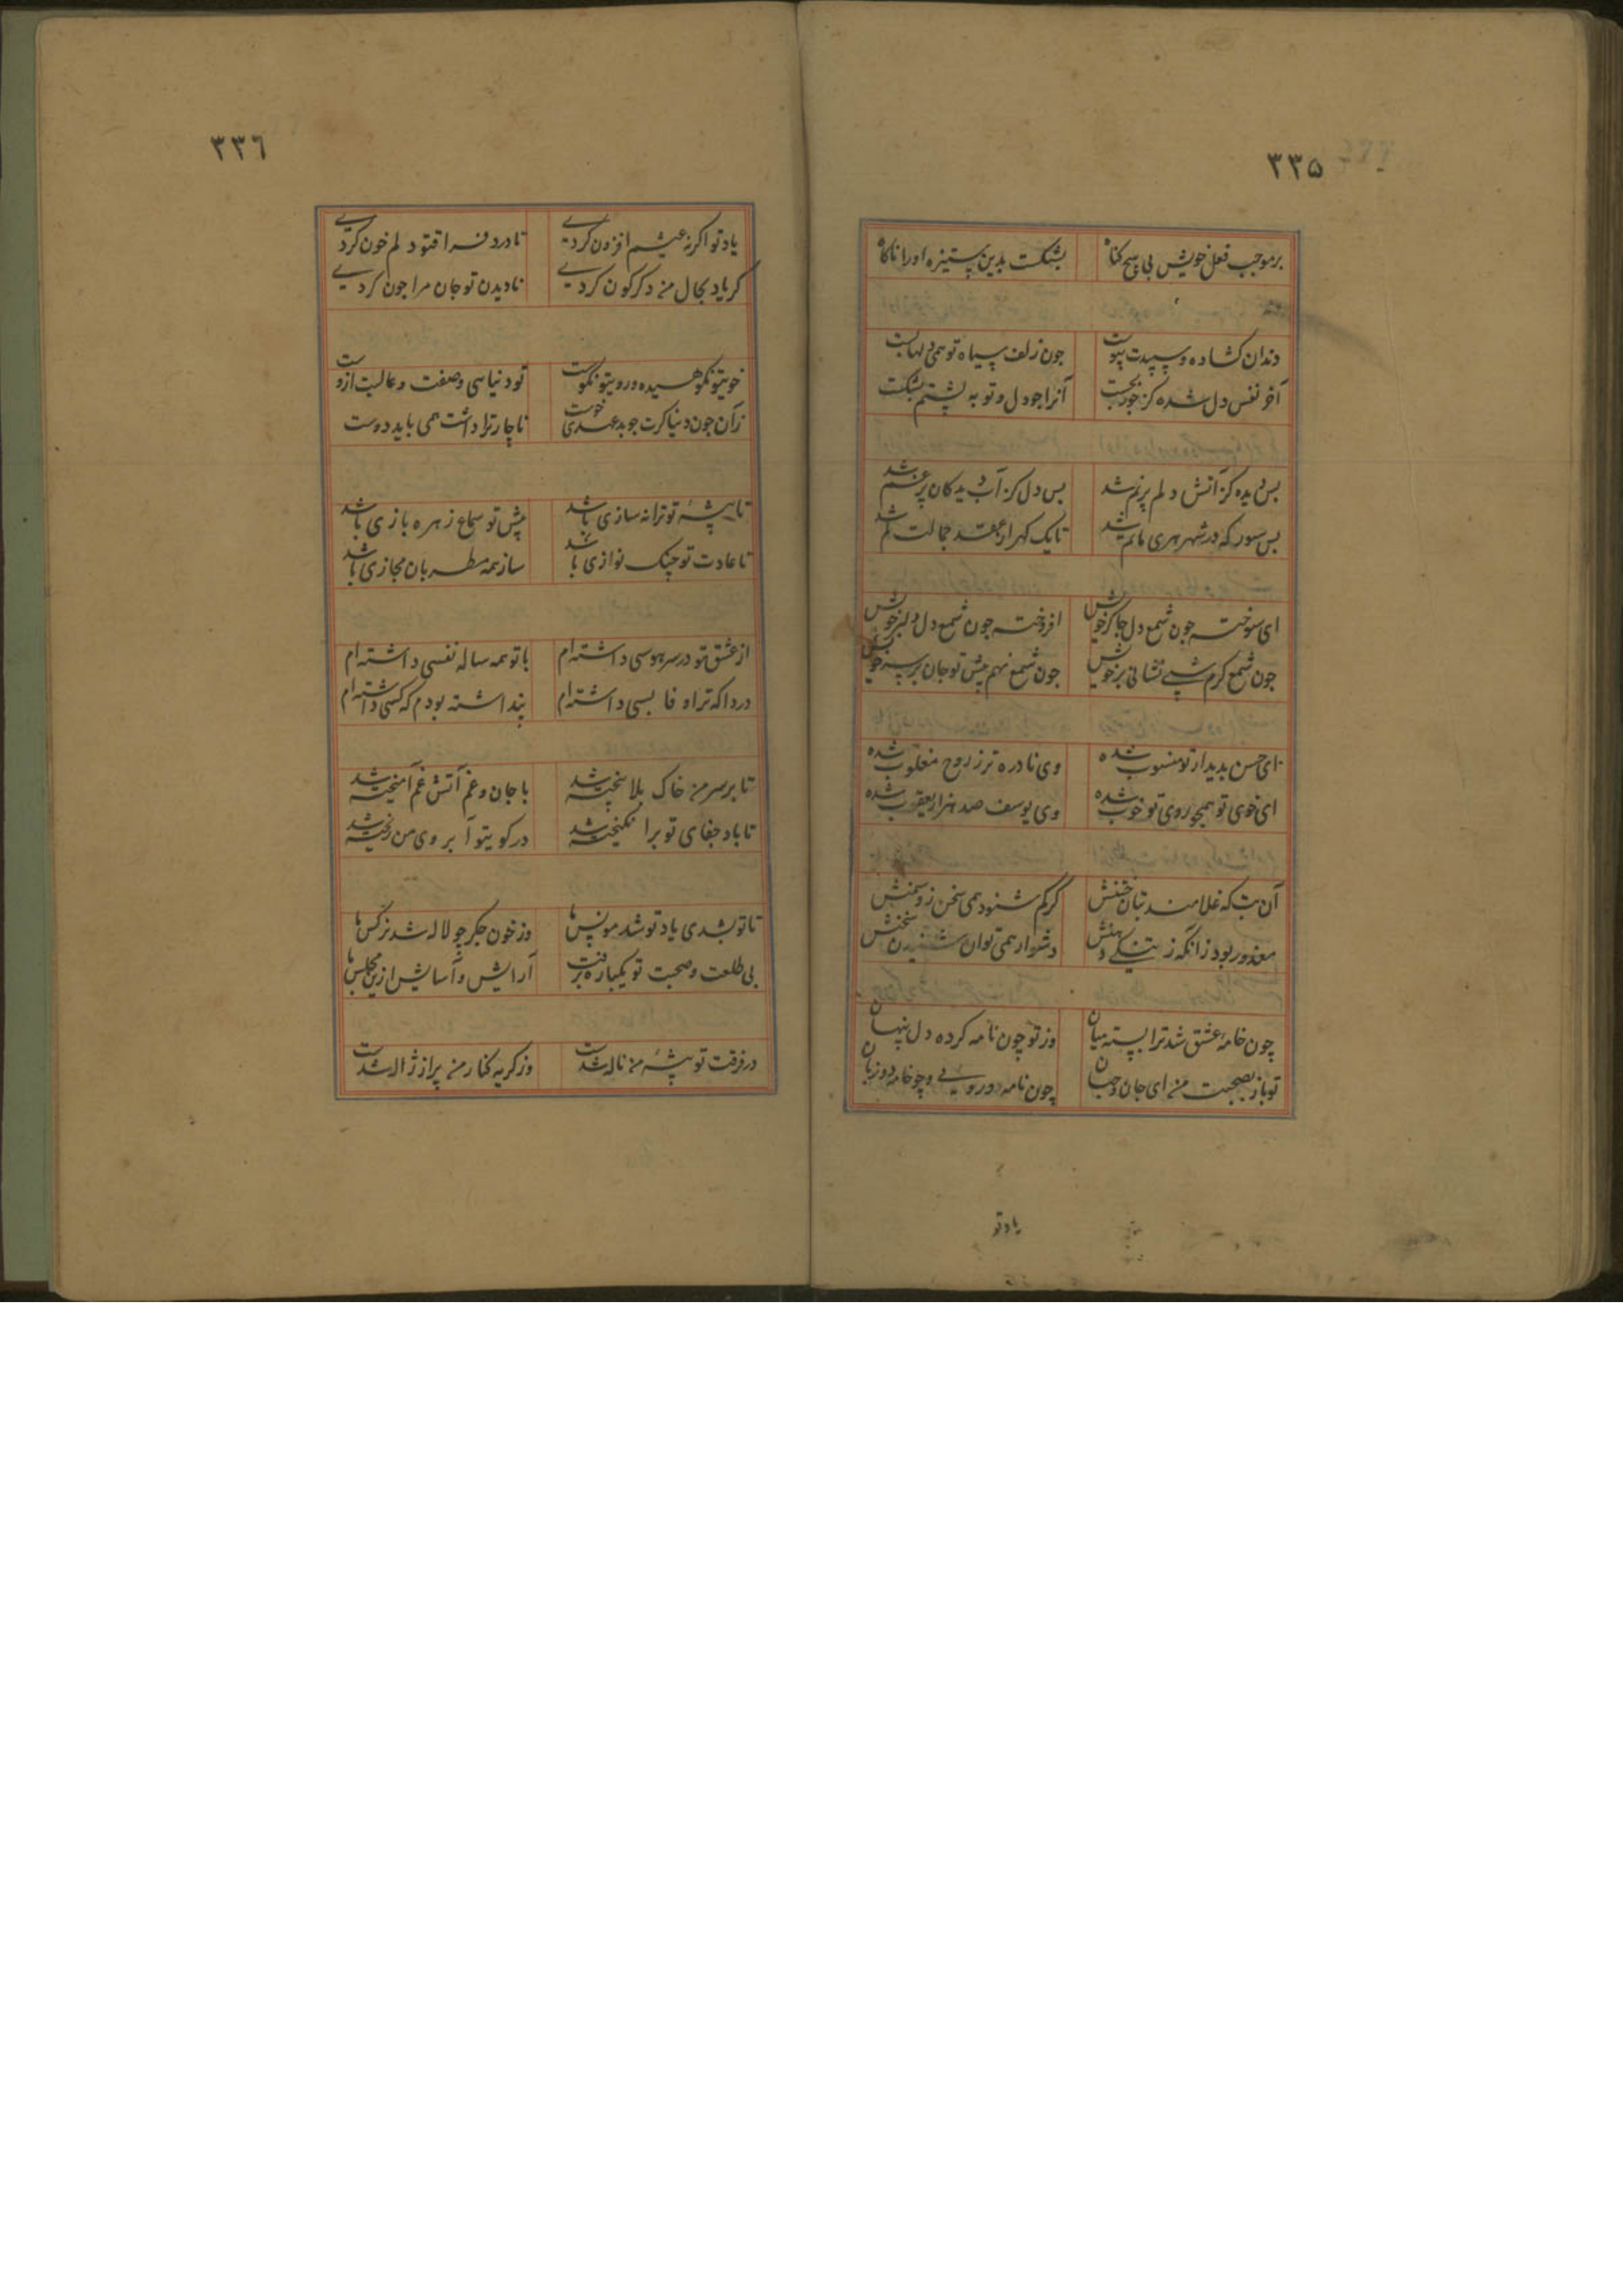 ۳۳۵
برموجب فعل خویش بی هیچ کناه بشکست بدین ستیزه اورا ناکاه
دندان کشاده و سپیدت پیوست جون زلف سیاه تو همی دلها
آخر نفس دل شده کز جورت آنرا جو دل و توبه پشتم بشکست
بس دیده کز آتش دلم پرنم شد بس دل کز آب دیدکان پرغم شد
بس سور که در شهر هری ماتم شد تا یک کهر از عقد جمالت کم شد
ای سوخته جون شمع دل جاکر خویش افروخته جون شمع دل دلبر خویش
جون شمع کرم شبی نشانی بر خویش جون شمع نهم پیش تو جان بر سر خویش
ای حسن بدیدار تو منسوب شده وی نادره تر ز روح مغلوب شده
ای خوی تو همچو روی تو خوب شده وی یوسف صد هزار یعقوب شده
آن بت که غلامند بتان ختنش کر کم شنود همی سخن زو سمنش
معذور بود زانکه ز تنکی دهنش دشوار همی توان شنیدن سخنش
چون خامهٔ عشق شد ترا بسته میان وز تو چون نامه کرده دل پنهان
تو باز بصحبت من ای جان و جهان چون نامه دورویی و چو خامه دوزبان
یاد تو
۳۳٦
یاد تو اکر نه عیشم افزون کردی تا درد فراقتو دلم خون کردی
کر یاد بحال من دکرکون کردی نادیدن تو جان مرا جون کردی
خویتو نکوهیده و رویتو نکوست تو دنیاسی وصفت و عالیت ازوست
زآن جون دنیا کرت جو بدعهدی خوست ناچار ترا داشت همی باید دوست
تا پیشهٔ تو ترانه سازی باشد پیش تو سماع زهره بازی باشد
تا عادت تو چنک نوازی باشد ساز همه مطربان مجازی باشد
از عشق تو در سر هوسی داشته‌ام با تو همه ساله نفسی داشته‌ام
دردا که ترا وفا بسی داشته‌ام پنداشته بودم که کسی داشته‌ام
تا بر سر من خاک بلا بیخته شد با جان و غم آتش غم آمیخته شد
تا باد جفای تو برانکیخته شد در کویتو آبروی من ریخته شد
تا تو بشدی یاد تو شد مونس ما وز خون جکر چو لاله شد نرکس ما
بی طلعت و صحبت تو یکباره برفت آرایش و آسایش ازین مجلس ما
در فرقت تو پیشهٔ من ناله شدست وز کریه کنار من پر از ژاله شدست